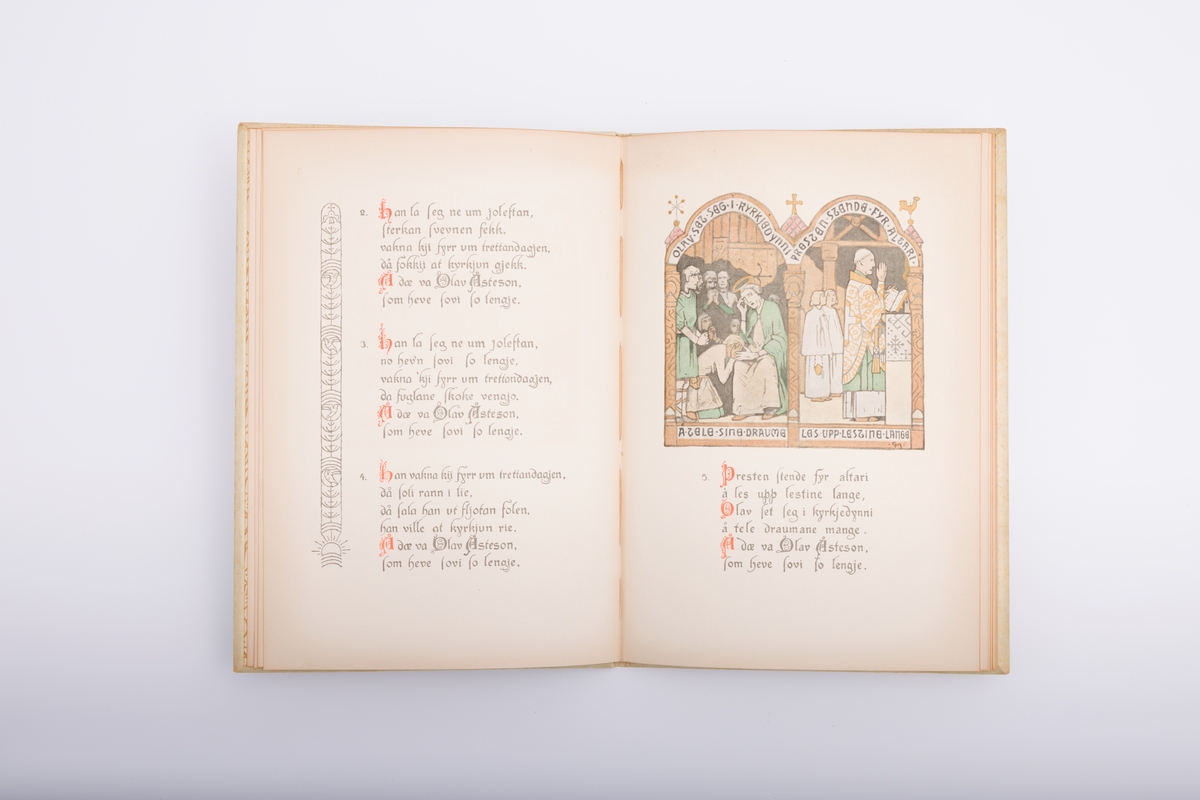 2. Han la seg ne um joleftan,
sterkan svevnen fekk.
vakna kji fyrr um trettandagjen,
då fokkji at kyrkjun gjekk.
Å dæ va Olav Åsteson,
som heve sovi so lengje.
3. Han la seg ne um joleftan,
no hev'n sovi so lengje.
vakna 'kji fyrr um trettondagjen,
da fuglane skoke vengjo.
Å dæ va Olav Åsteson,
som heve sovi so lengje.
4. Han vakna kji fyrr um trettandagjen,
då soli rann i lie.
då sala han ut fljotan folen.
han ville at kyrkjun rie.
Å dæ va Olav Åsteson,
som heve sovi so lengje.
OLAV·SET·SEG·I·KYRKJEDYNNI
PRESTEN·STANDE·FYR·ALTARI·
Å·TELE·SINE·DRAUME
LES·UPP·LESTINE·LANGE
5. Presten stende fyr altari
å les upp lestine lange,
Olav set seg i kyrkjedynni
å tele draumane mange.
Å dæ va Olav Åsteson,
som heve sovi so lengje.